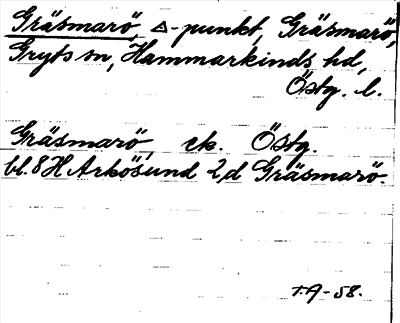 Gräsmarö, △-punkt, Gräsmarö,
Gryts sn, Hammarkinds hd,
Östg. l.
Gräsmarö, ek. Östg.
bl. 8H Arkösund 2,d Gräsmarö.
T.A-58.